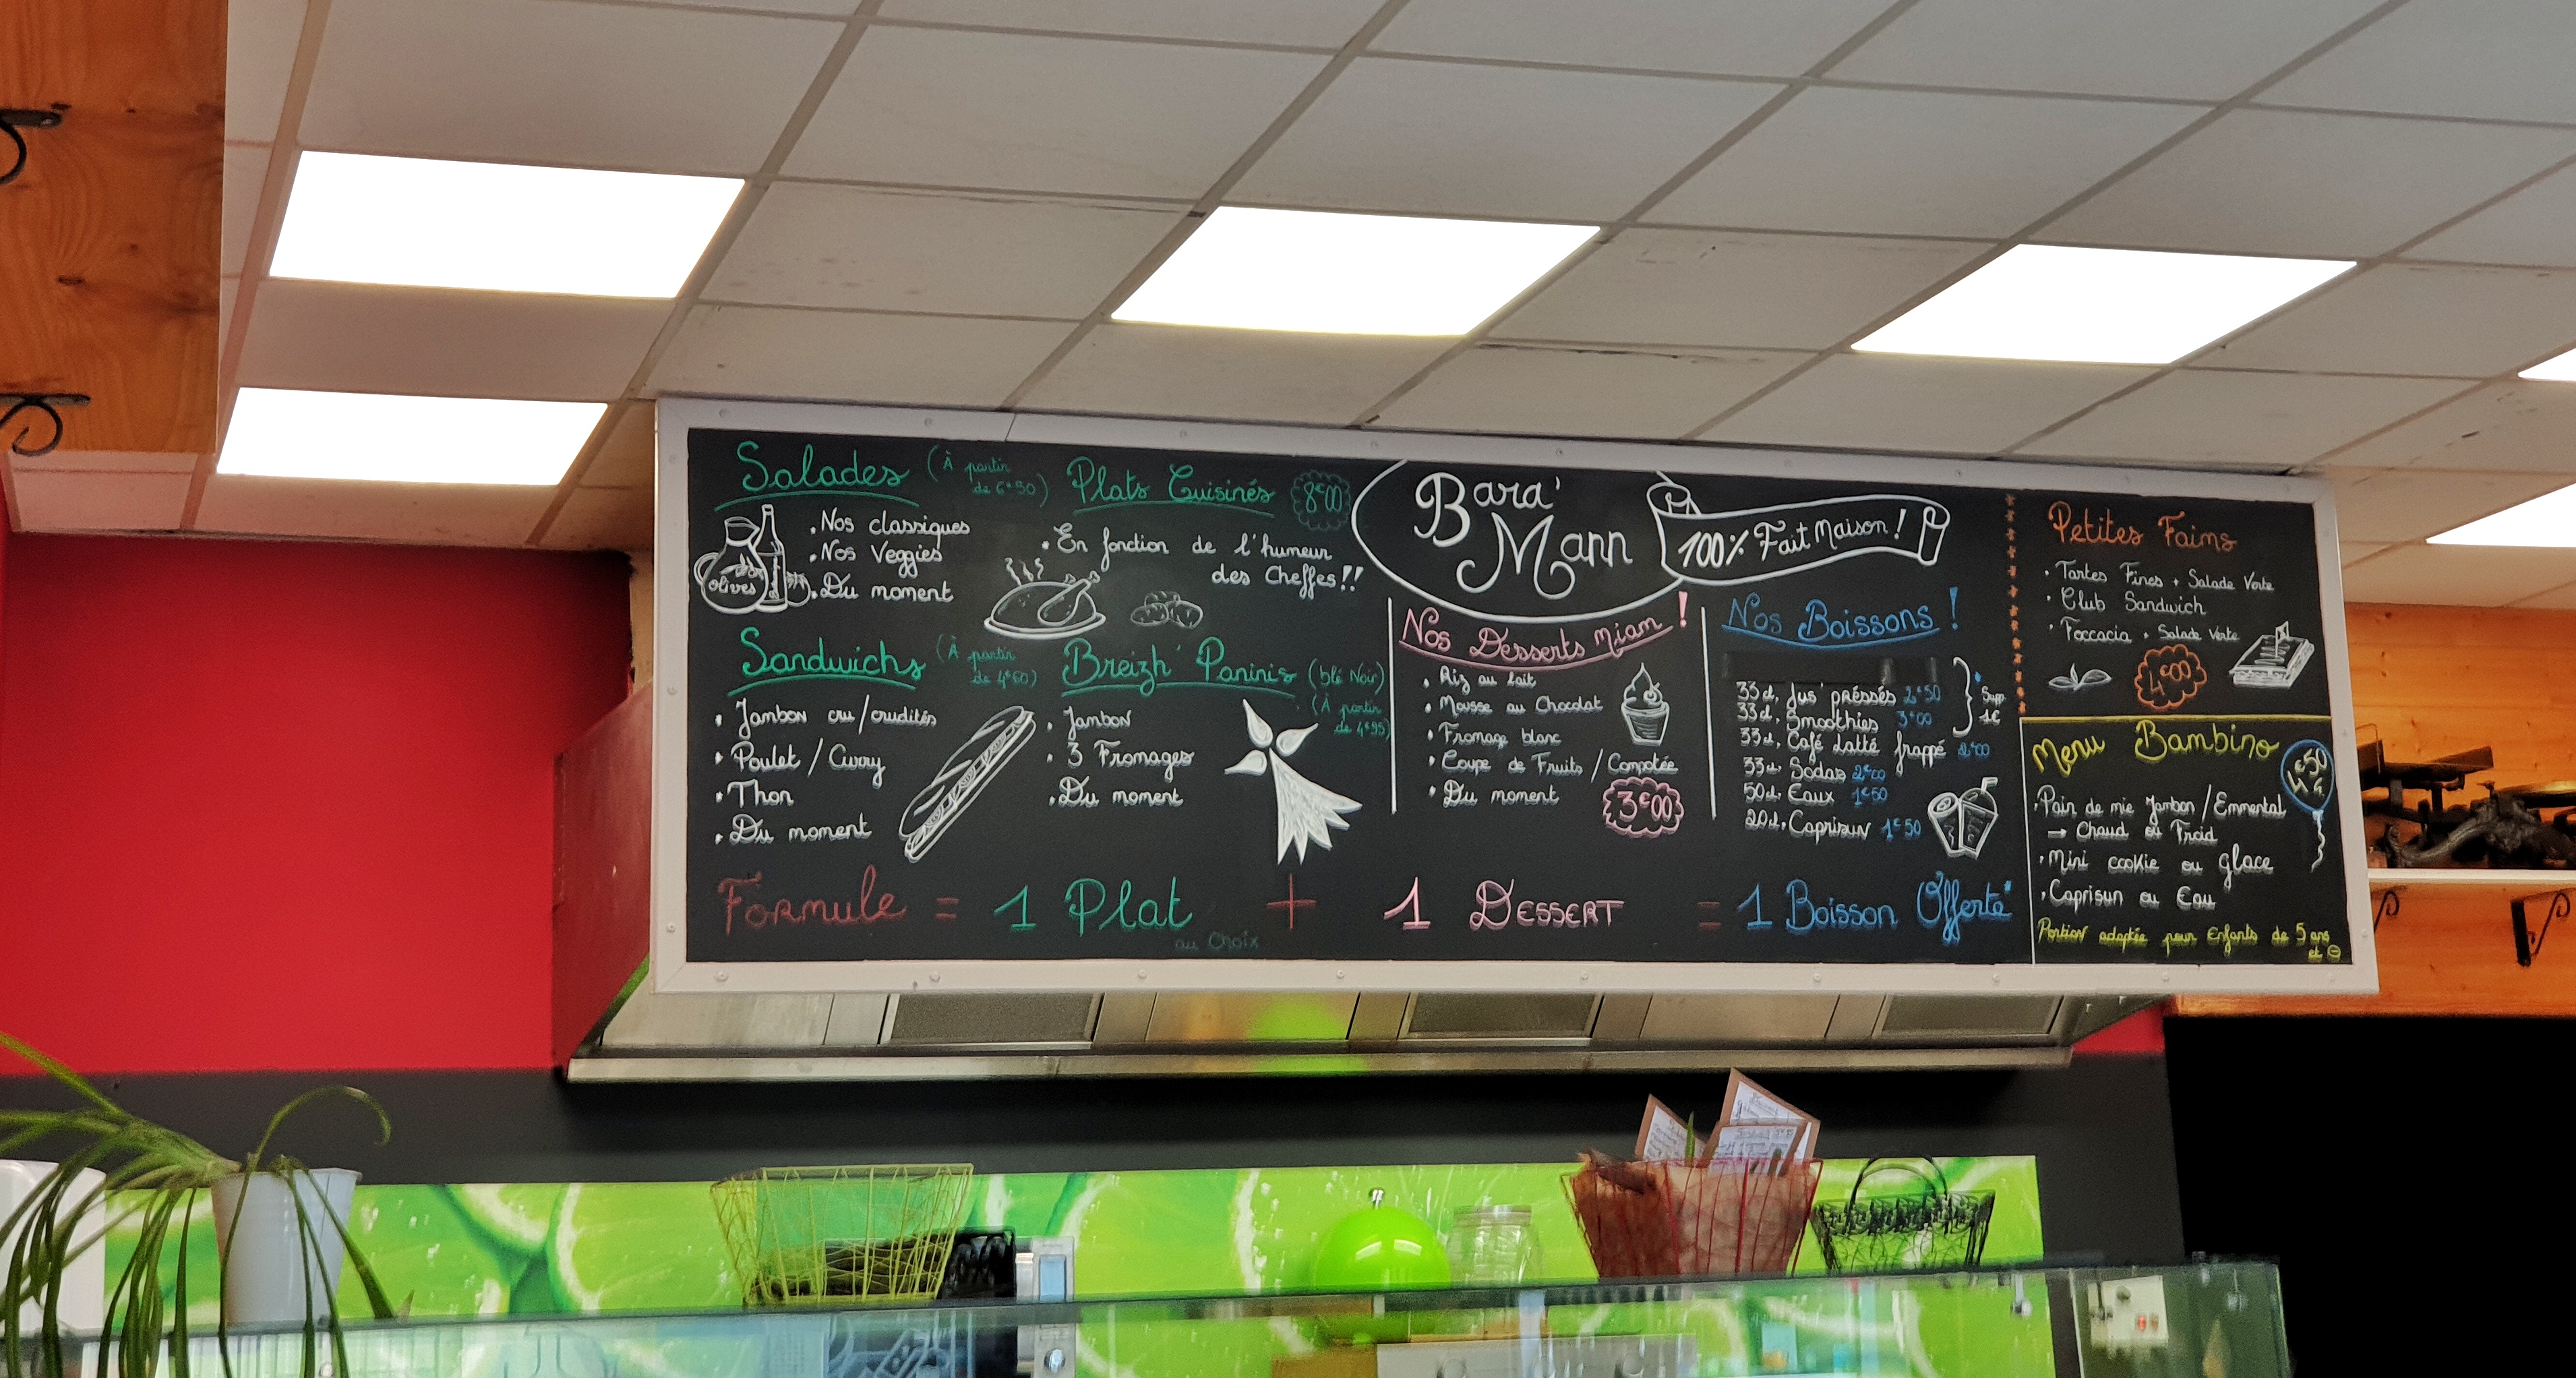 Salades (À partir
de 6€50)
olives
• Nos classiques
• Nos Veggies
• Du moment
Plats Cuisinés 8€00
• En fonction de l'humeur
des Cheffes!!
Sandwichs (À partir
de 4€60)
• Jambon cru/crudités
• Poulet / Curry
• Thon
• Du moment
Breizh' Paninis (blé Noir)
(À partir
de 4€95)
• Jambon
• 3 Fromages
• Du moment
Bara'
Mann
100% Fait Maison!
Nos Desserts Miam!
• Riz au lait
• Mousse au Chocolat
• Fromage blanc
• Coupe de Fruits / Compotée
• Du moment
3€00
Nos Boissons!
33cl. Jus' préssés 2€50
33cl. Smoothies 3€00
Supp.
1€
33cl. Café Latté frappé 2€00
33cl. Sodas 2€00
50cl. Eaux 1€50
20cl. Caprisun 1€50
Formule = 1 Plat + 1 Dessert = 1 Boisson Offerte*
au Choix
Petites Faims
• Tartes Fines + Salade Verte
• Club Sandwich
• Foccacia + Salade Verte
4€00
Menu Bambino
• Pain de mie Jambon / Emmental
→ Chaud ou Froid
• Mini cookie ou glace
• Caprisun ou Eau
Portion adaptée pour Enfants de 5 ans
et ⊖